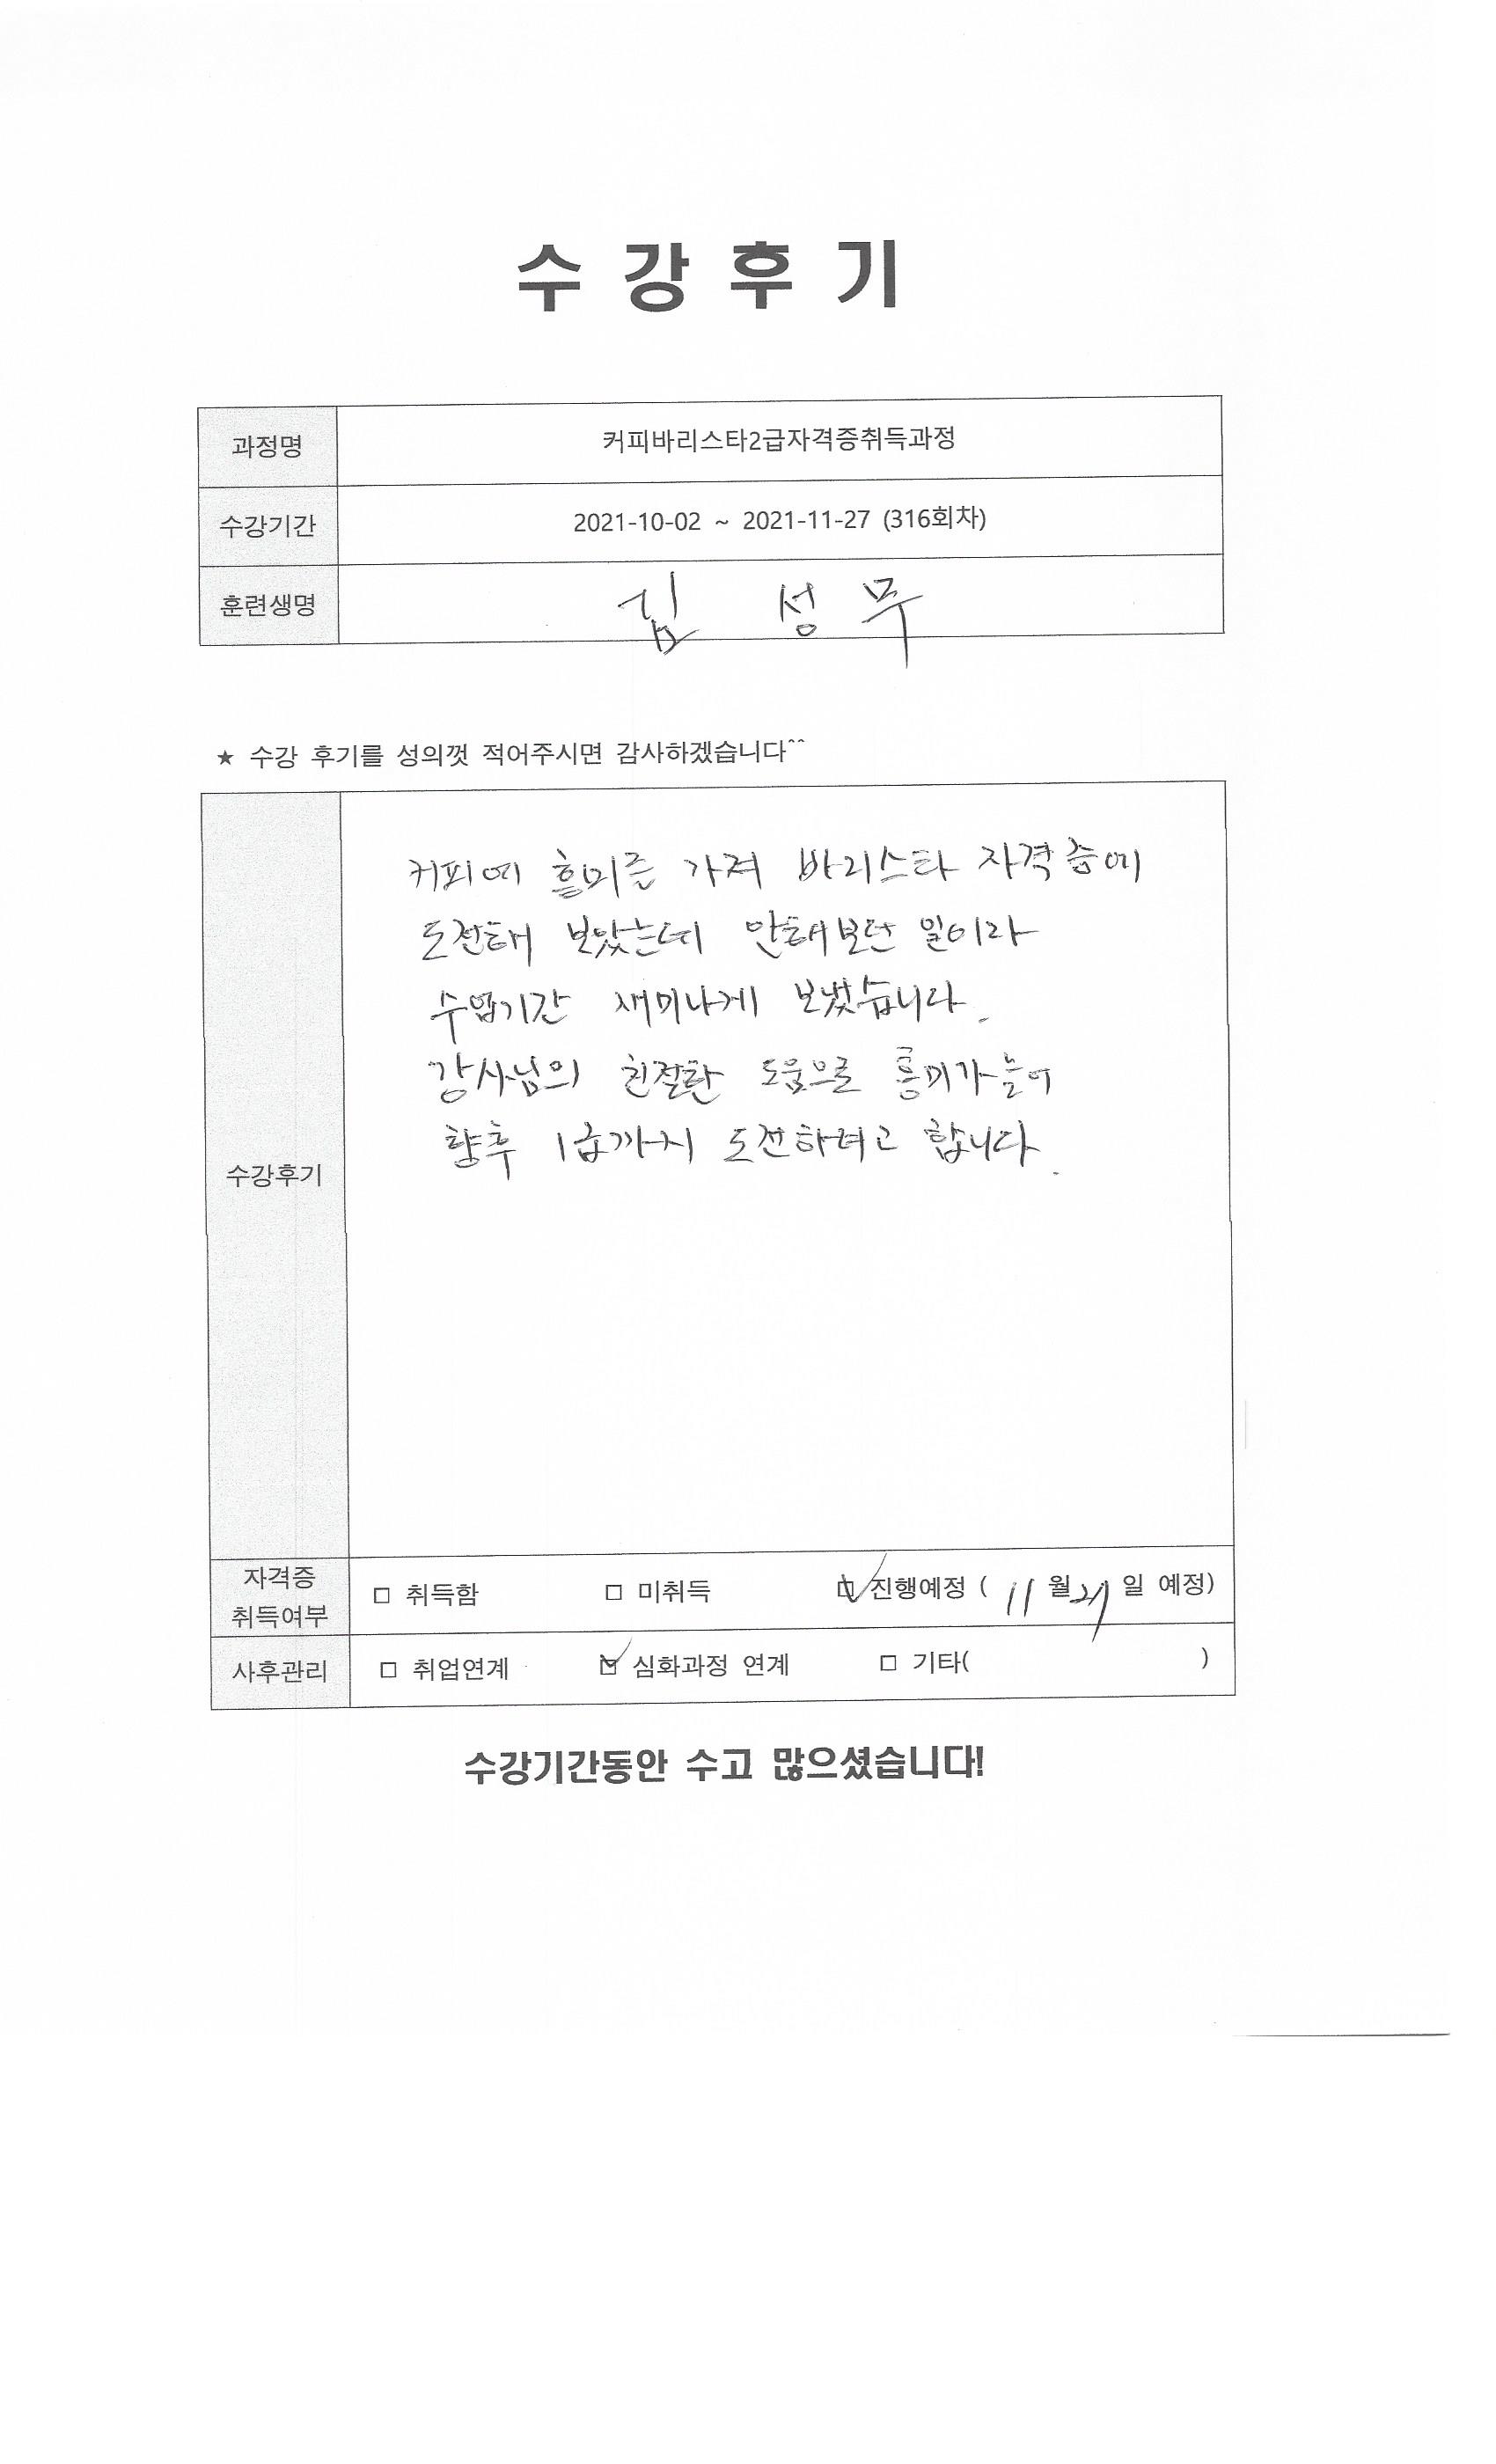 수강후기
과정명 커피바리스타2급자격증취득과정
수강기간 2021-10-02 ~ 2021-11-27 (316회차)
훈련생명 김 성 무
★ 수강 후기를 성의껏 적어주시면 감사하겠습니다^^
커피에 흥미를 가져 바리스타 자격증에
도전해 보았는데 안해보던 일이라
수업기간 재미나게 보냈습니다.
강사님의 친절한 도움으로 흥미가 늘어
향후 1급까지 도전하려고 합니다.
수강후기
자격증
취득여부 □ 취득함 □ 미취득 ☑ 진행예정 ( 11 월 27 일 예정)
사후관리 □ 취업연계 ☑ 심화과정 연계 □ 기타( )
수강기간동안 수고 많으셨습니다!